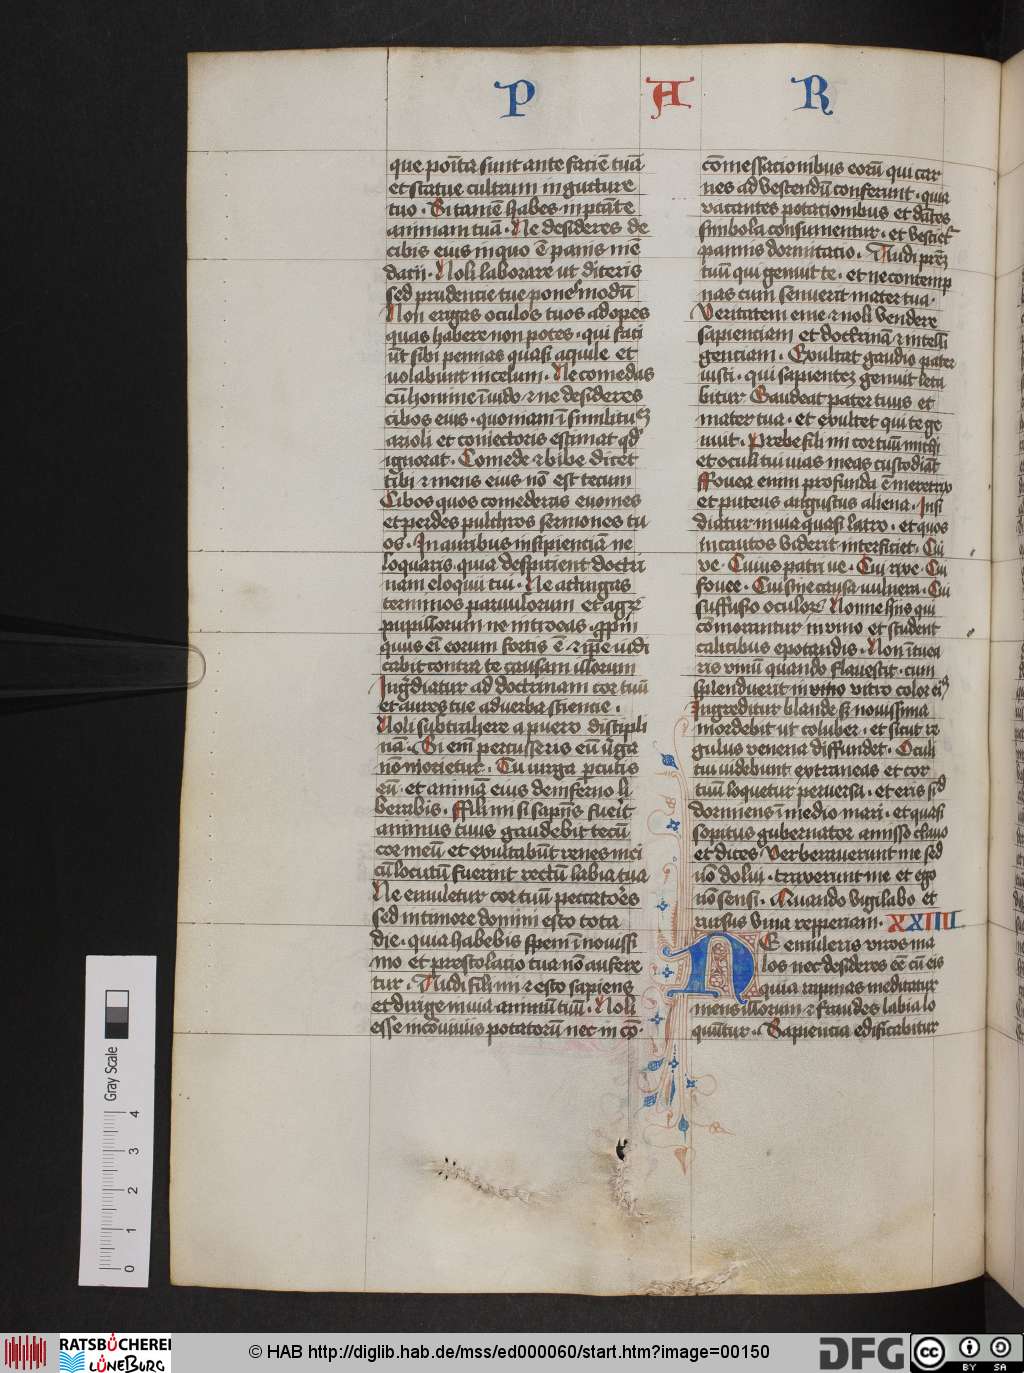 P A R
que po͞ita sunt ante facie͞ tua͞
et statue cultrum in gutture
tuo · Si tame͞ habes in p̄tāte
animam tua͞ · Ne desideres de
cibis eius in quo e͞ panis me͞
dacii · Noli laborare ut diteris
sed prudencie tue pone modu͞
Non erigas oculos tuos ad opes
quas habere non potes · qui faci
u͞t sibi pennas quasi aquile et
uolabunt in celum · Ne comedas
cu͞ homine i͞uido ⁊ ne desideres
cibos eius · quoniam i͞ similitu
arioli et coniectoris estimat qd͛
ignorat · Comede ⁊ bibe dicet
tibi ⁊ mens eius no͞ est tecum
Cibos quos comederas euomes
et perdes pulchros sermones tu
os · In auribus insipienciu͞ ne
loquaris · quia despicient doctri
nam eloquii tui · Ne attingas
terminos paruulorum et agru͞
pupillorum ne introeas · ꝓpin
quus ei͞ eorum fortis e͞ ⁊ ip͞e iudi
cabit contra te causam illorum
Ing͛diatur ad doctrinam cor tuu͞
et aures tue ad uerba sciencie ·
Noli subtrahere a puero discipli
na͞ · Si em͞ percusseris eu͞ u͛ga
no͞ morietur · Tu uirga ꝑcucis
eu͞ · et anima͞ eius de inferno li
berabis · Fili mi si sapie͞s fuerit
animus tuus gaudebit tecu͞
cor meu͞ et exultabu͞t renes mei
cu͞ locutu͞ fuerint rectu͞ labia tua
Ne emuletur cor tuu͞ peccatores
sed in timore domini esto tota
die · quia habebis spem i͞ nouissi
mo et prestolacio tua no͞ aufere
tur · Audi fili mi ⁊ esto sapiens
et dirige in uia animu͞ tuu͞ · Noli
esse in co͞uiuiis potatoru͞ nec in co͞
co͞messacionibus eoru͞ qui car
nes ad vescendu͞ conferunt · quia
vacantes potacionibus et dantes
simbola consumentur · et vestiet͛
pannis dormitacio · Audi pr͞em
tuu͞ qui genuit te · et ne contemp
nas cum senuerit mater tua ·
Veritatem eme ⁊ noli vendere
sapienciam et doctrina͞ ⁊ intelli
genciam · Exultat gaudio pater
iusti · qui sapientem genuit leta
bitur Gaudeat pater tuus et
mater tua · et exultet qui te ge
nuit · Prebe fili mi cor tuu͞ michi
et oculi tui uias meas custodia͞t
Fouea enim profunda e͞ meretrix
et puteus angustus aliena · Insi
diatur in uia quasi latro · et quos
incautos viderit interficiet · Cui
ve · Cuius patri ve · Cui rixe · Cui
fouee · Cui sine causa uulnera · Cui
suffusio oculor͛ Nonne hiis qui
co͞morantur in vino et student
calicibus epotandis · Non i͞tuea
ris vinu͞ quando flauescit · cum
splenduerit in vitro color ei͛
Ingreditur blande s͞ nouissima
mordebit ut coluber · et sicut re
gulus venena diffundet · Oculi
tui uidebunt extraneas et cor
tuu͞ loquetur peruersa · et eris sic͛
dormiens i͞ medio mari · et quasi
sopitus gubernator amisso clauo
et dices Verberauerunt me sed
no͞ dolui · traxerunt me et ego
no͞ sensi · Quando vigilabo et
rursus vina repperiam · XXIIII
Ne emuleris viros ma
los nec desideres ee͞ cu͞ eis
quia rapinas meditatur
mens illorum ⁊ fraudes labia lo
qu͞utur · Sapiencia edificabitur
Gray Scale
4
3
2
1
0
RATSBÜCHEREI
LÜNEBURG
© HAB http://diglib.hab.de/mss/ed000060/start.htm?image=00150
DFG
cc BY SA